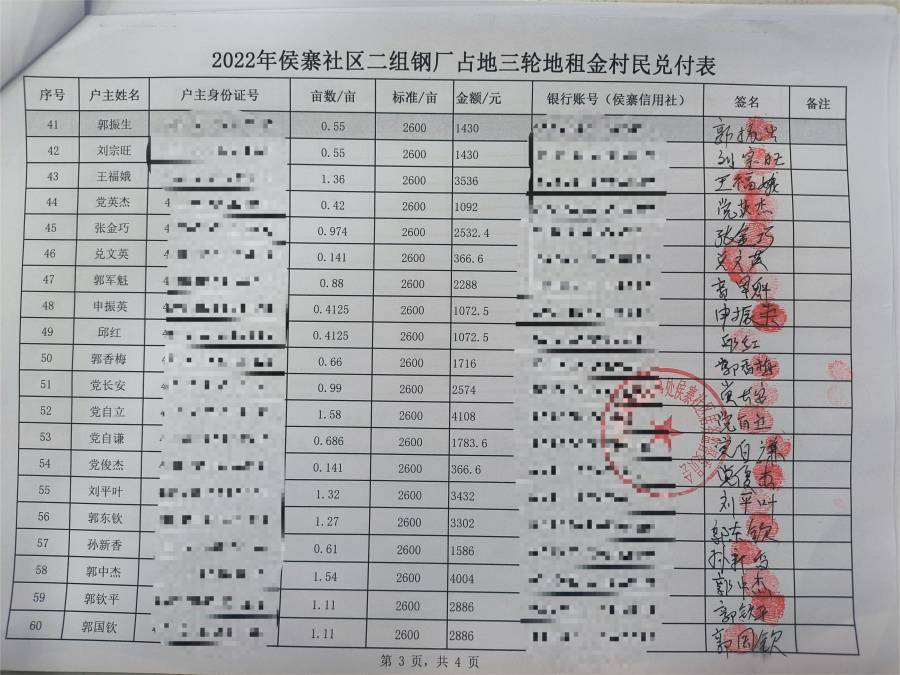 2022年侯寨社区二组钢厂占地三轮地租金村民兑付表
序号 户主姓名 户主身份证号 亩数/亩 标准/亩 金额/元 银行账号（侯寨信用社） 签名 备注
41 郭振生 0.55 2600 1430 郭振生
42 刘宗旺 0.55 2600 1430 刘宗旺
43 王福娥 1.36 2600 3536 王福娥
44 党英杰 0.42 2600 1092 党英杰
45 张金巧 4 0.974 2532.4 2600 张金巧
46 兑文英 4 0.141 2600 366.6 兑文英
47 郭军魁 4 0.88 2600 2288 郭军魁
48 申振英 4 0.4125 2600 1072.5 申振英
49 邱红 4 0.4125 2600 1072.5 邱红
50 郭香梅 4 0.66 2600 1716 郭香梅
51 党长安 4 0.99 2600 2574 党长安
52 党自立 4 1.58 2600 4108 党自立
53 党自谦 4 0.686 2600 1783.6 党自谦
54 党俊杰 4 0.141 2600 366.6 党俊杰
55 刘平叶 4 1.32 2600 3432 刘平叶
56 郭东钦 4 1.27 2600 3302 郭东钦
57 孙新香 4 0.61 2600 1586 孙新香
58 郭中杰 1.54 2600 4004 郭中杰
59 郭钦平 1.11 2600 2886 郭钦平
60 郭国钦 4 1.11 2600 2886 郭国钦
处侯寨社区
第 3 页，共 4 页